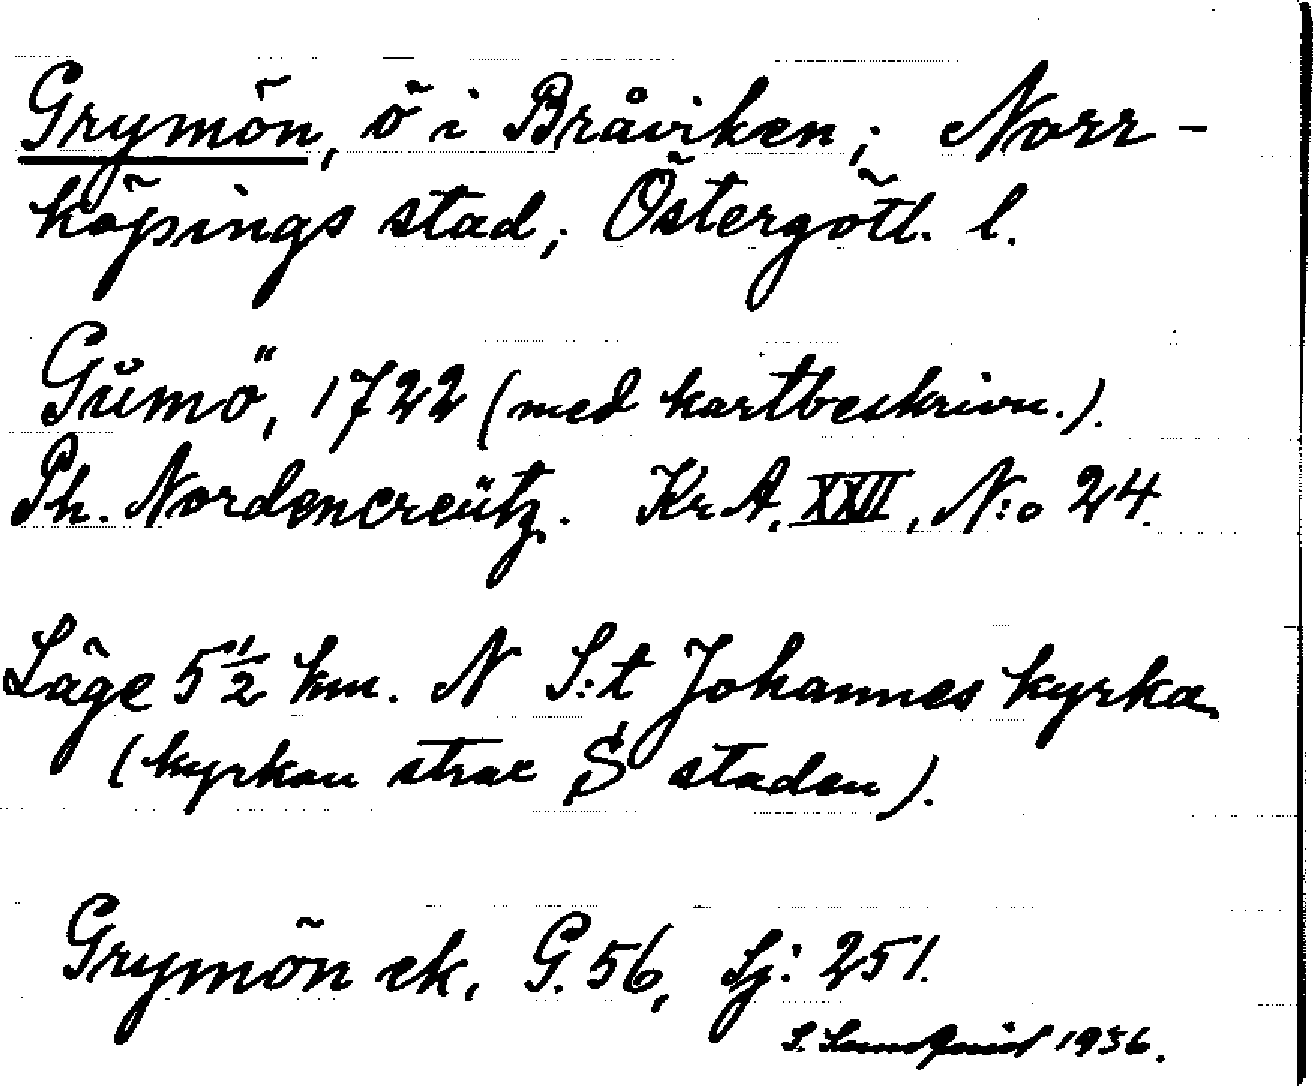 Grymön, ö i Bråviken; Norr-
köpings stad; Östergötl. l.
Gůmö, 1722 (med kartbeskrivn.).
Ph. Nordencreütz. Kr A, XXII, N:o 24.
Läge 5 1/2 km. N S:t Johannes kyrka
(kyrkan strax S staden).
Grymön ek, G. 56, Sj: 251.
1936.